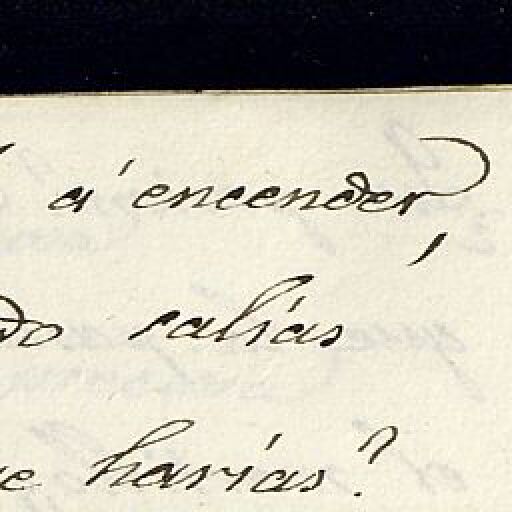 á encender,
do salías
e harías?